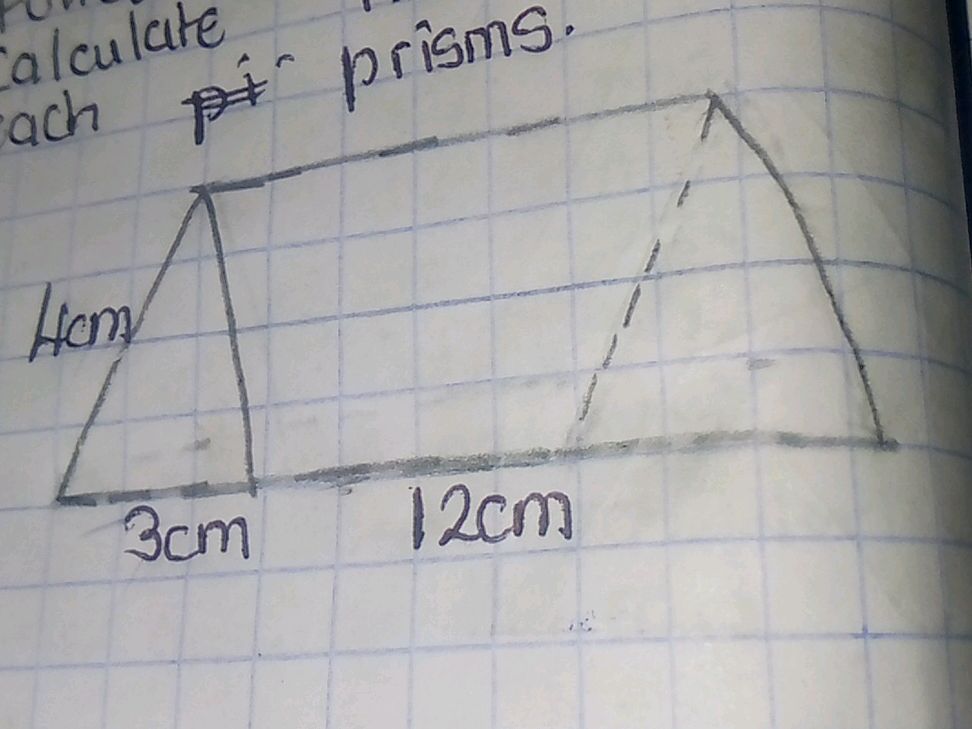 Calculate
each prisms.
4cm
3cm
12cm